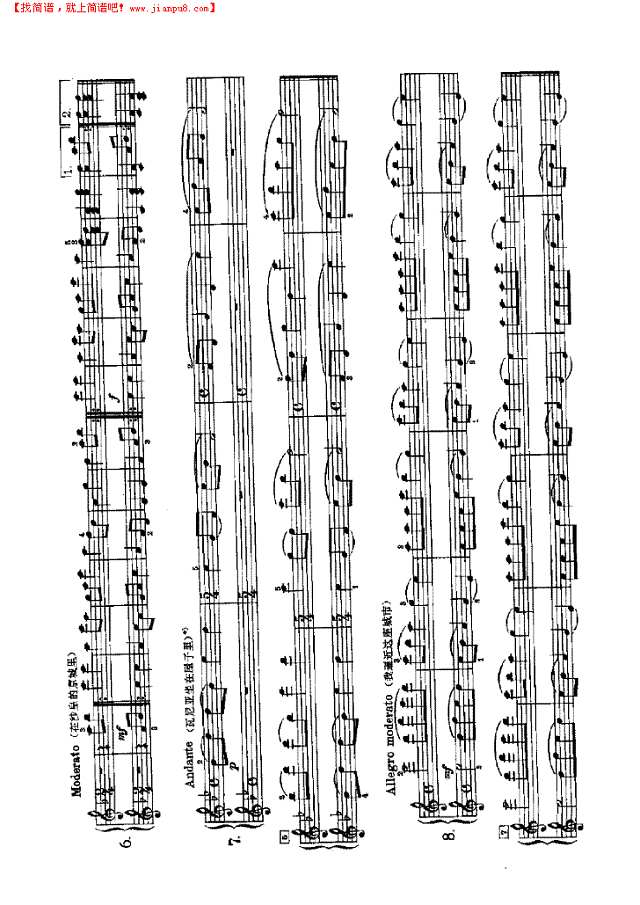 【找简谱，就上简谱吧! www.jianpu8.com】
6.
Moderato (在沙皇的京城里)
mf
f
1.
2.
7.
Andante (瓦尼亚坐在屋子里)*)
p
5
8.
Allegro moderato (我逼近这座城市)
mf
7